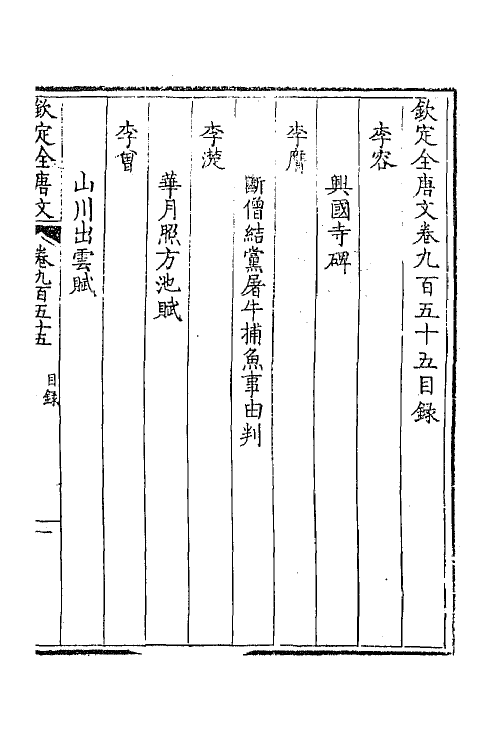 欽定全唐文卷九百五十五目録
李容
興國寺碑
李膺
斷僧結黨屠牛捕魚事由判
李蓯
華月照方池賦
李曾
山川出雲賦
欽定全唐文 卷九百五十五 目録 一